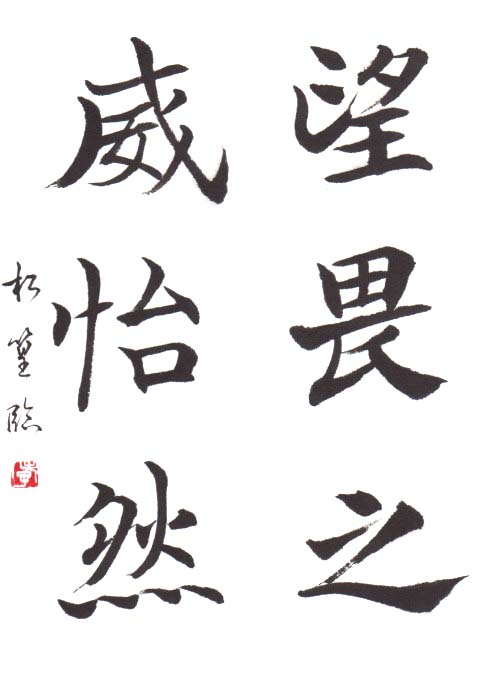 望畏之
威怡然
松篁臨